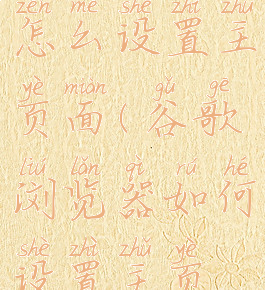 zěn me shè zhì zhǔ
怎么设置主
yè miàn gǔ gē
页面(谷歌
liú lǎn qì rú hé
浏览器如何
shè zhì zhǔ yè
设置主页